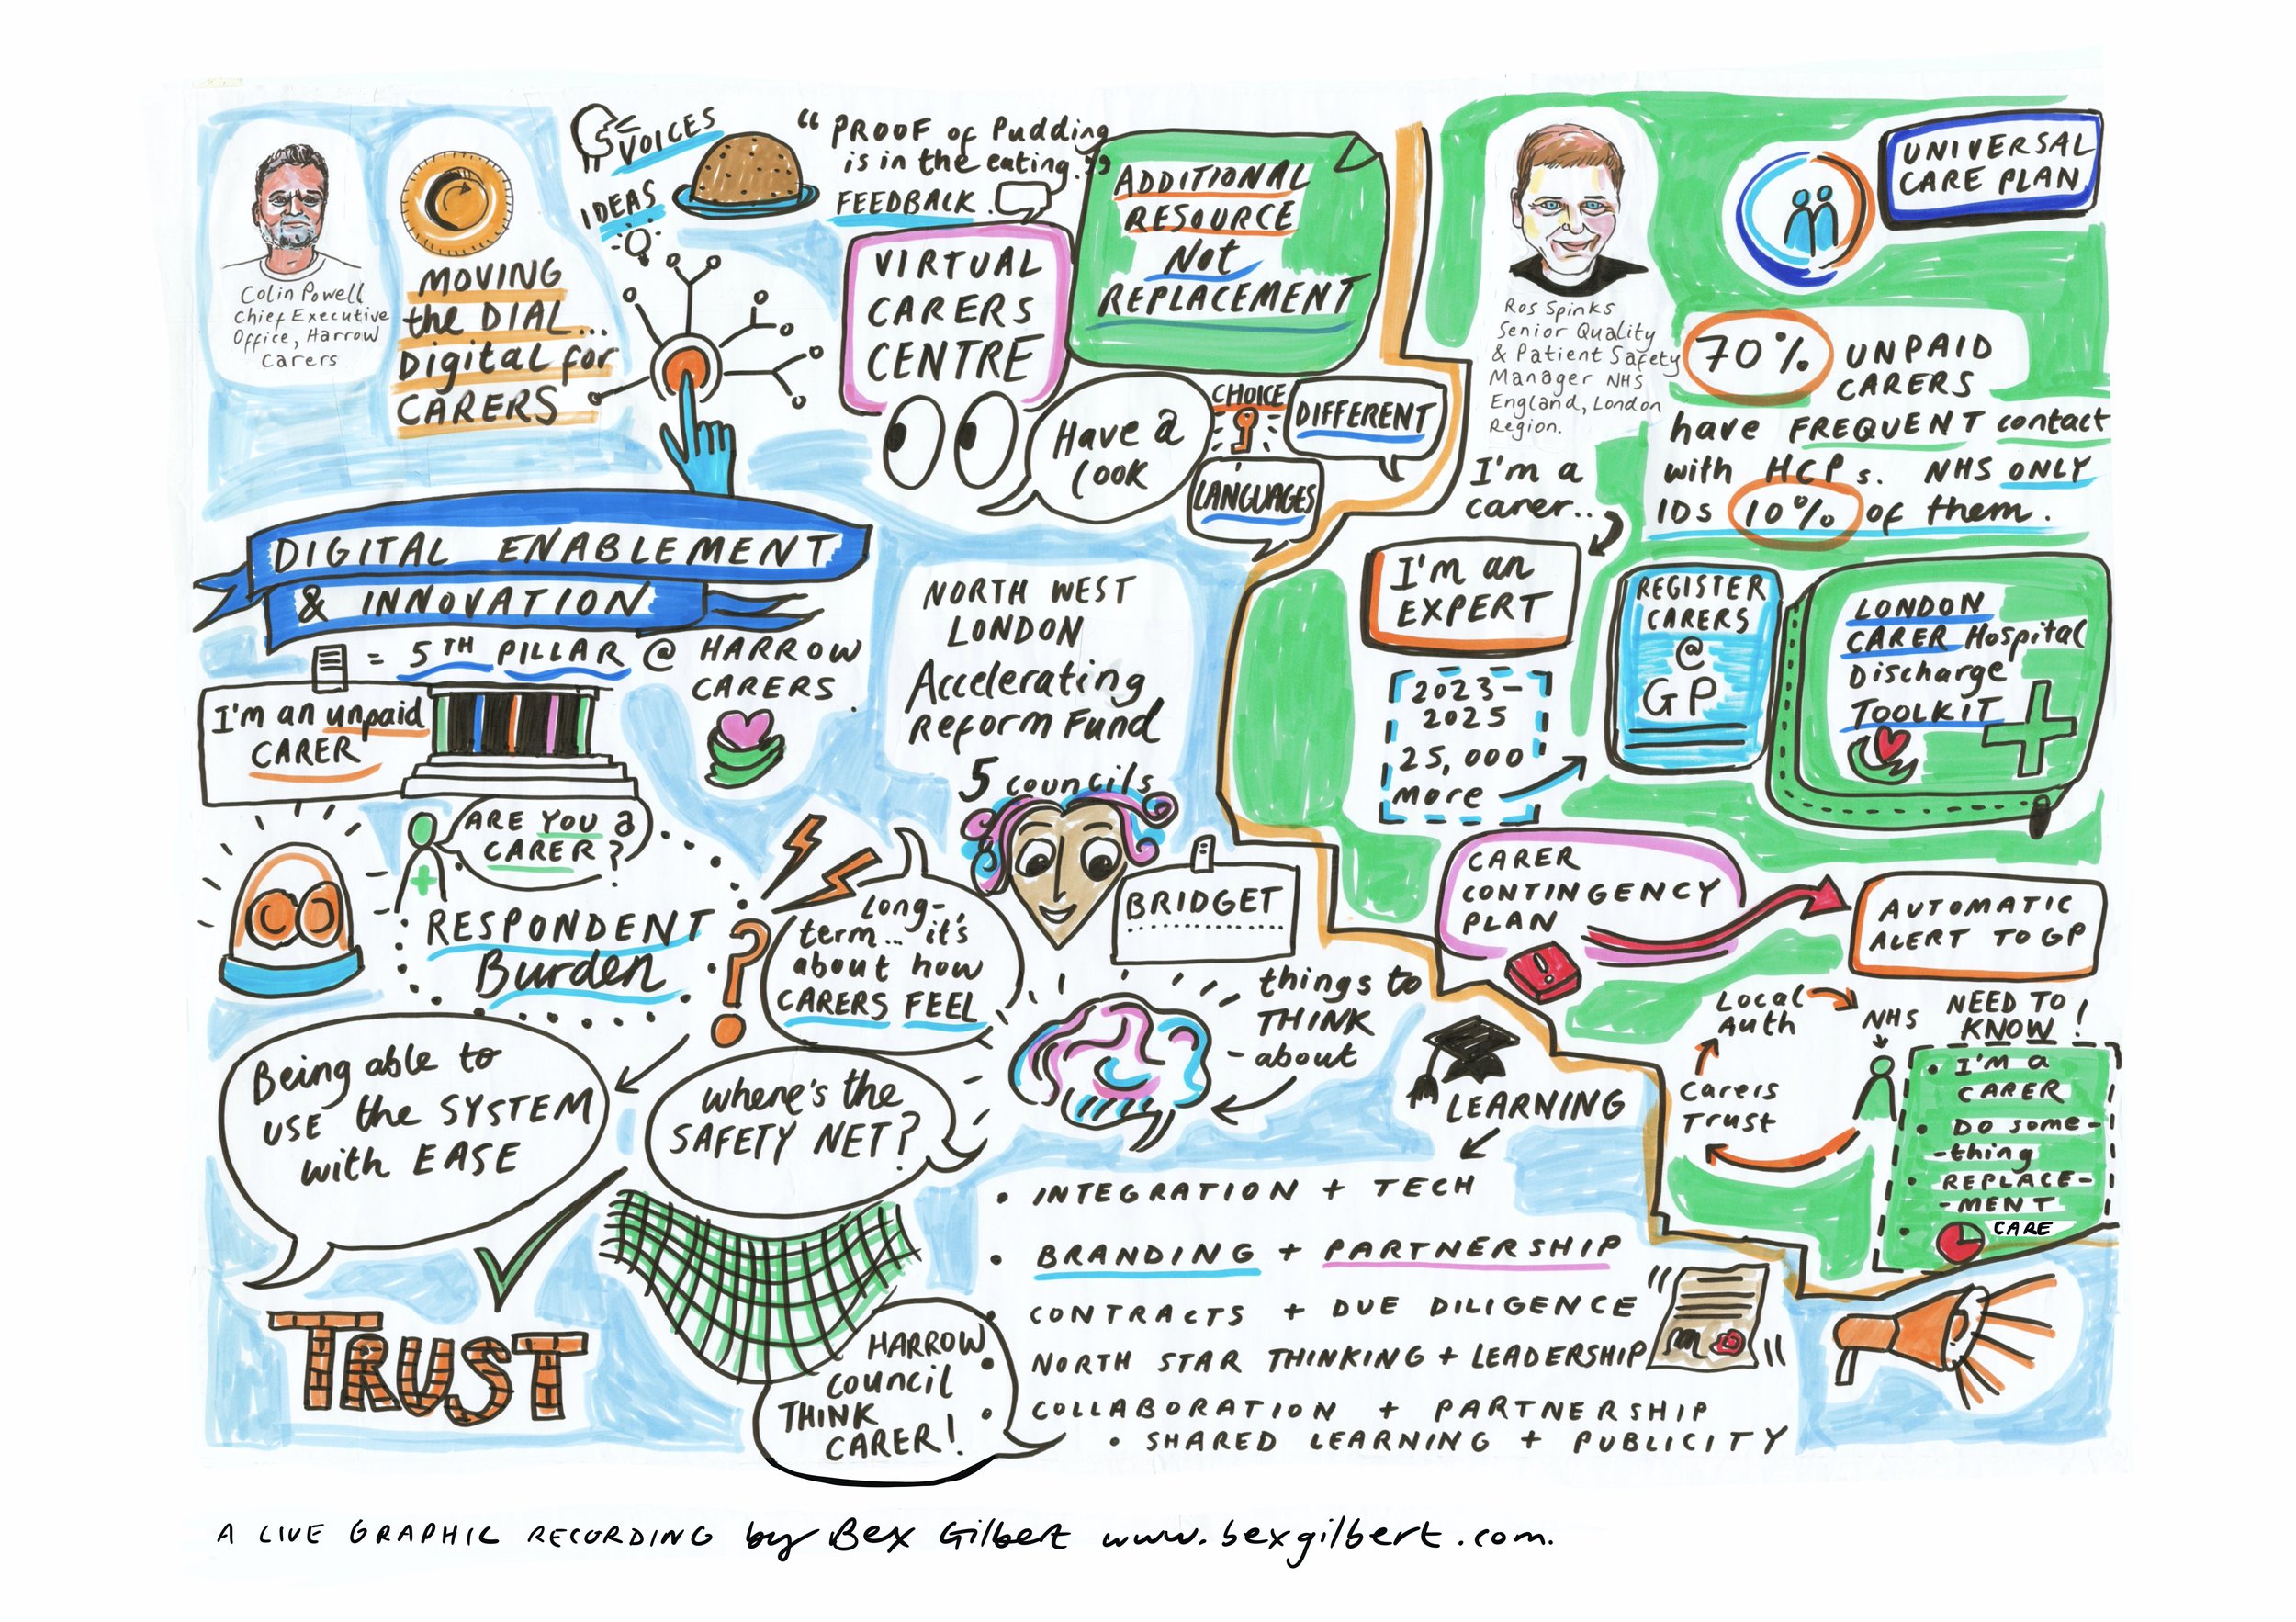 Colin Powell
Chief Executive
Office, Harrow
Carers
MOVING
the DIAL...
Digital for
CARERS
VOICES
IDEAS
“PROOF of Pudding
is in the eating.”
FEEDBACK
VIRTUAL
CARERS
CENTRE
ADDITIONAL
RESOURCE
Not
REPLACEMENT
Have a
look
CHOICE
DIFFERENT
LANGUAGES
DIGITAL ENABLEMENT
& INNOVATION
= 5TH PILLAR @ HARROW
CARERS.
I'm an unpaid
CARER
NORTH WEST
LONDON
Accelerating
Reform Fund
5 councils
ARE YOU a
CARER?
RESPONDENT
Burden
?
Long-
term... it's
about how
CARERS FEEL
BRIDGET
things to
THINK
- about
Being able to
USE the SYSTEM
with EASE
where's the
SAFETY NET?
TRUST
HARROW
council
THINK
CARER!
LEARNING
• INTEGRATION + TECH
• BRANDING + PARTNERSHIP
• CONTRACTS + DUE DILIGENCE
• NORTH STAR THINKING + LEADERSHIP
• COLLABORATION + PARTNERSHIP
• SHARED LEARNING + PUBLICITY
Ros Spinks
Senior Quality
& Patient Safety
Manager NHS
England, London
Region.
UNIVERSAL
CARE PLAN
70% UNPAID
CARERS
have FREQUENT contact
with HCPs. NHS ONLY
IDs 10% of them.
I'm a
carer..
I'm an
EXPERT
2023-
2025
25,000
more
REGISTER
CARERS
@
GP
LONDON
CARER Hospital
Discharge
TOOLKIT
CARER
CONTINGENCY
PLAN
!
AUTOMATIC
ALERT TO GP
Local
Auth
NHS
Carers
Trust
NEED TO
KNOW!
• I'M a
CARER
• DO some-
-thing
• REPLACE-
-MENT
• CARE
A LIVE GRAPHIC RECORDING by Bex Gilbert www.bexgilbert.com.